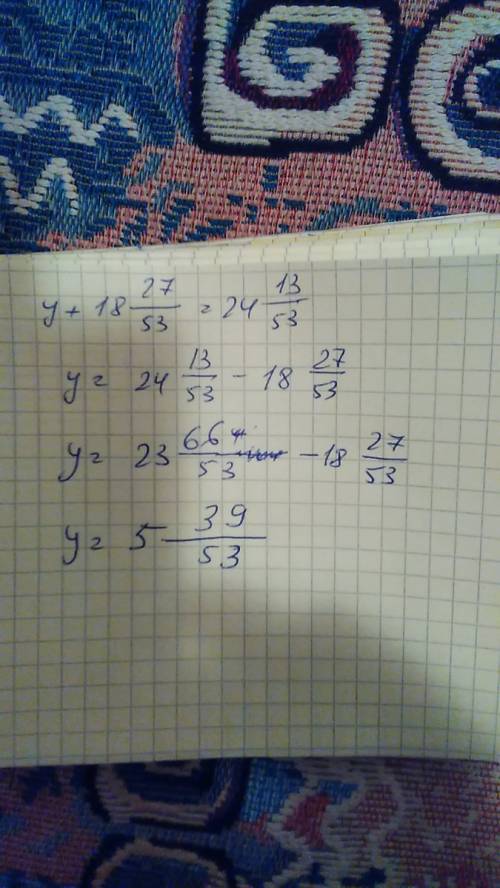 y + 18 27/53 = 24 13/53
y = 24 13/53 - 18 27/53
y = 23 66/53 - 18 27/53
y = 5 39/53